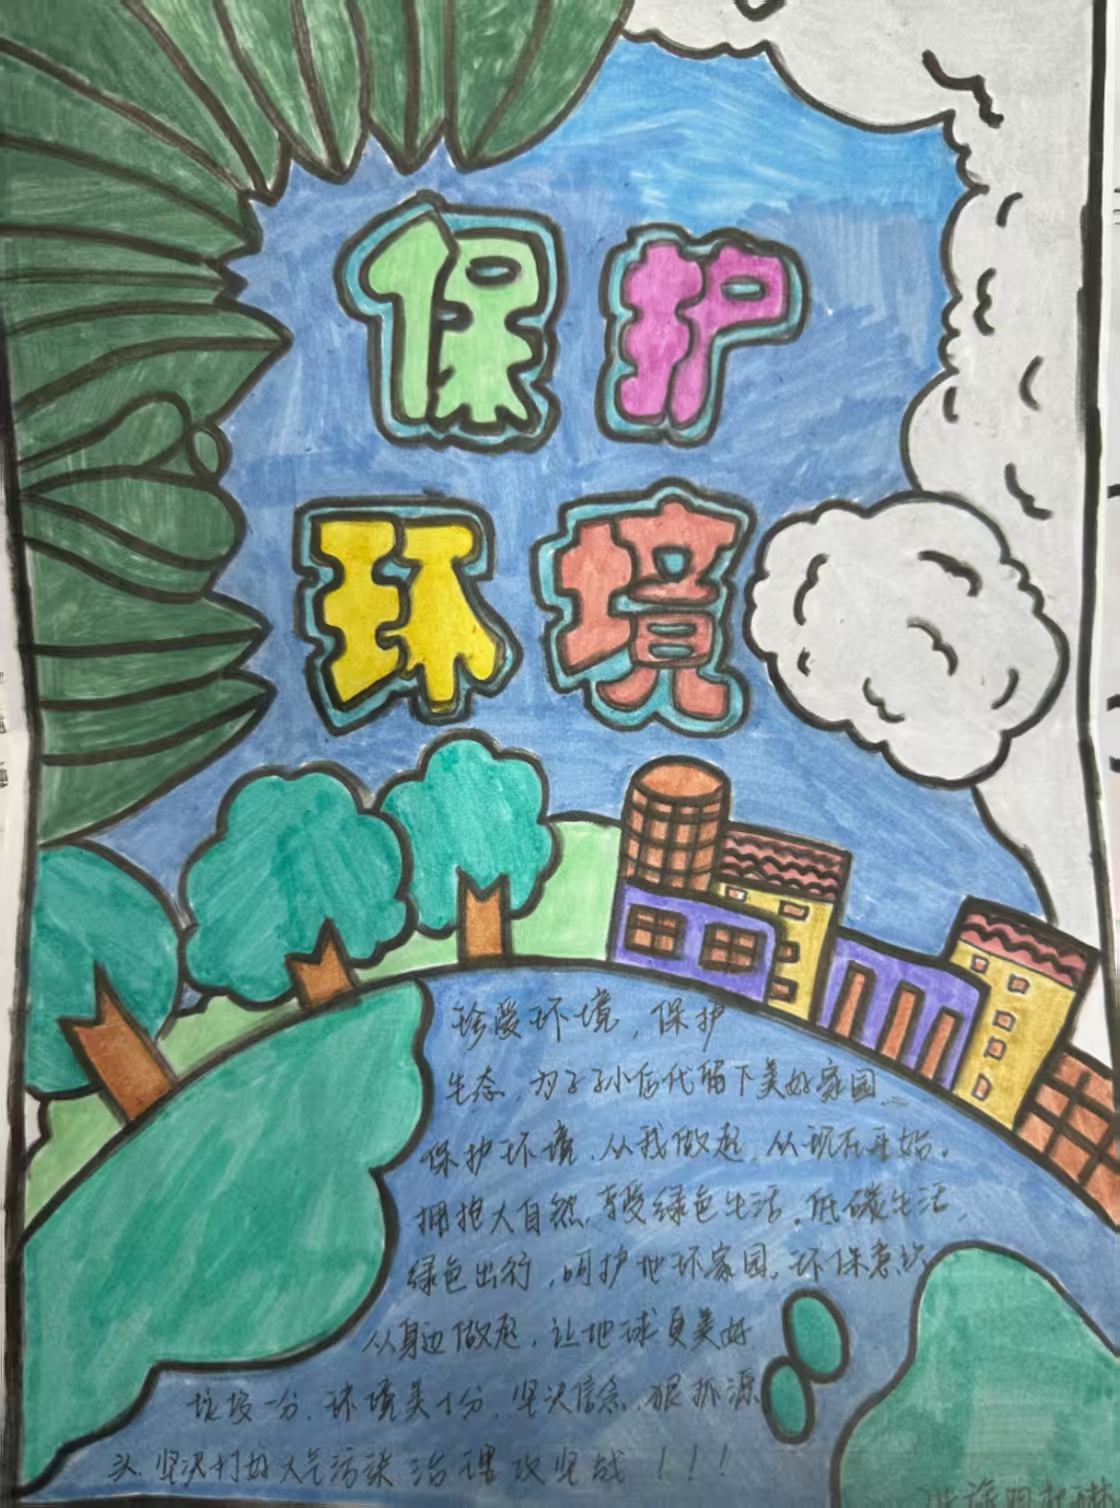 保护
环境
珍爱环境，保护
生态，为子子小后代留下美好家园。
保护环境，从我做起，从现在开始。
拥抱大自然，享受绿色生活。低碳生活，
绿色出行，呵护地环家园。环保意识
从身边做起，让地球更美好
垃圾一分，环境美十分，坚决信念，狠抓源
头，坚决打好大气污染治理攻坚战！！！